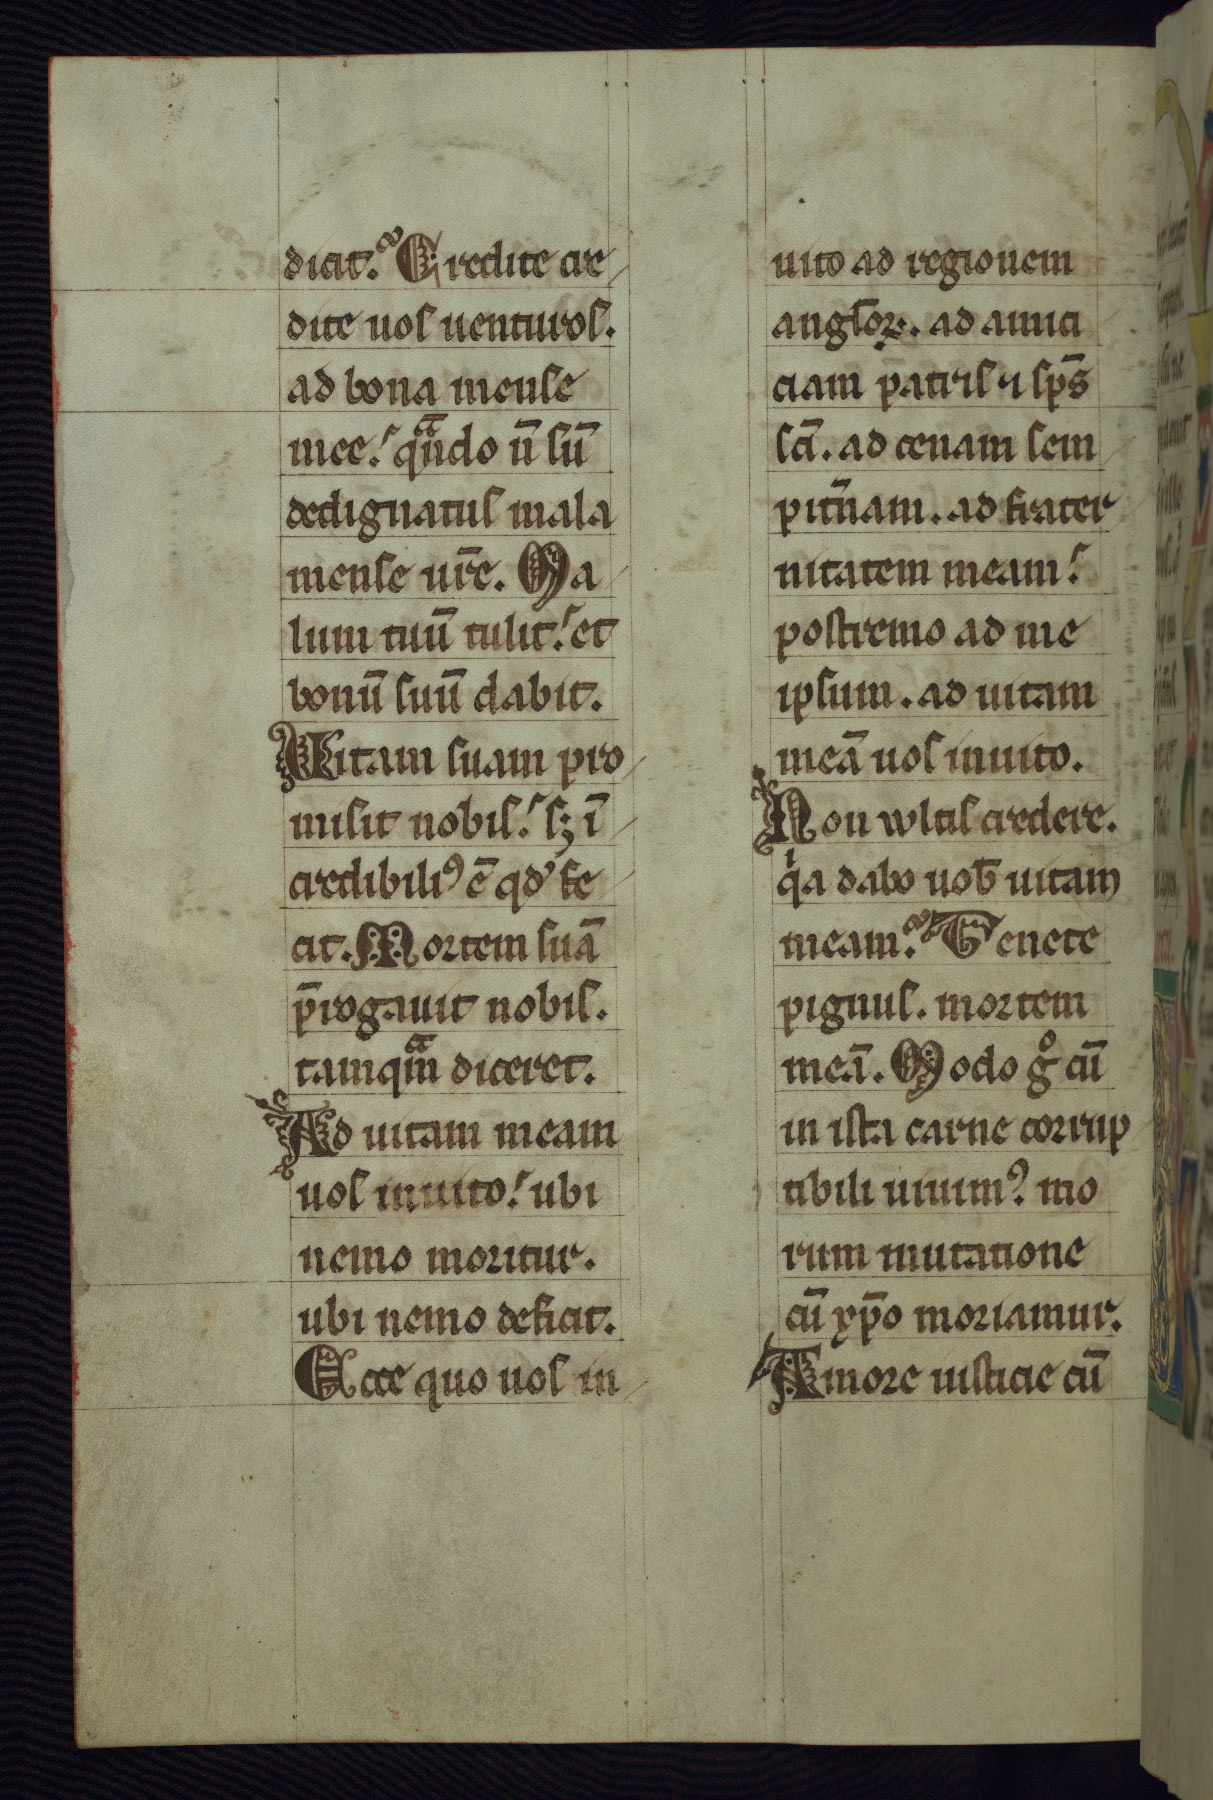 dicit. Credite cre
dite uos uenturos.
ad bona mense
mee. qͣndo n̄ sū
dedignatus mala
mense ur̄e. Ma
lum tuū tulit. et
bonū suū dabit.
Vitam suam pro
misit nobis. sꝫ ī
credibiliꝰ ē qd̓ fe
cit. Mortem suā
p̄rogauit nobis.
tamqͣm diceret.
Ad uitam meam
uos inuito. ubi
nemo moritur.
ubi nemo deficit.
Ecce quo uos in
uito ad regionem
angloꝝ. ad amici
ciam patris ⁊ sp̄s
sc̄i. ad cenam sem
pit̄nam. ad frater
nitatem meam.
postremo ad me
ipsum. ad uitam
meā uos inuito.
Non wltis credere.
qͥa dabo uob̄ uitam
meam. Tenete
pignus. mortem
meā. Modo gͦ cū
in ista carne corrup
tibili uiuimꝰ. mo
rum mutatione
cū xp̄o moriamur.
Amore iusticie cū